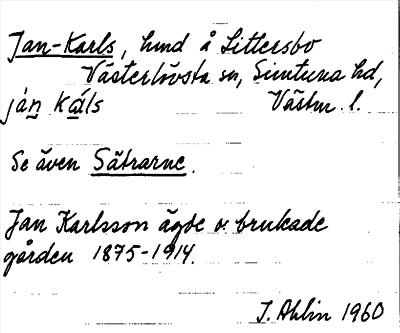 Jan-Karls, lund å Sittersbo
Västerlövsta sn, Simtuna hd,
ján ká̱ls Västm. l.
Se även Sätrarne.
Jan Karlsson ägde o. brukade
gården 1875-1914.
I. Ahlin 1960